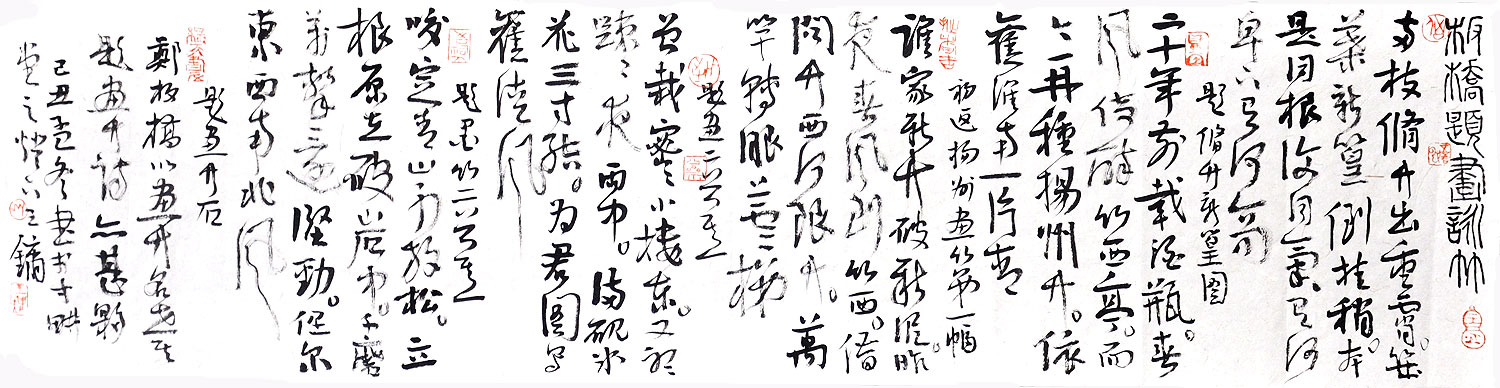 板橋題畫詠竹
两枝脩竹出重霄。幾
葉新篁倒挂梢。本
是同根復同氣。有何
卑下有何高
題脩竹新篁图
二十年前載酒瓶。春
风倚醉竹西亭。而
今再種揚州竹。依
舊淮南一片青
初返揚州畫竹第一幅
誰家新竹破新泥。昨
夜春風到竹西。借
問竹西何限竹。萬
竿轉眼上雲梯
題畫
曾栽密密小樓東。又聽
疎疎夜雨中。滿硯冰
花三寸结。为君图写
舊清风
題墨竹
咬定青山不放松。立
根原在破岩中。千磨
萬擊還堅勁。任尔
東西南北风
題畫竹石
鄭板橋以畫竹名世其
題畫竹詩亦甚夥
己丑孟冬書於半畊
堂之燈下之镛